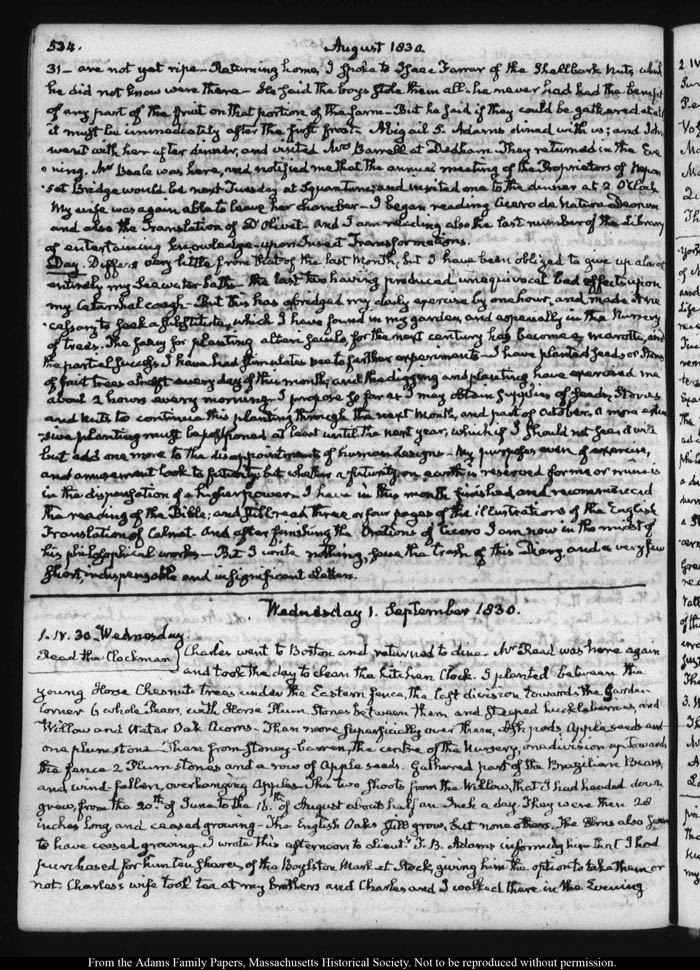 534.
August 1830.
31 — are not yet ripe — Returning home, I spoke to Isaac Farrar of the Shellbark Nuts, which
he did not know were there — He said the boys stole them all. he never had had the benefit
of any part of the fruit on that portion of the farm — But he said if they could be gathered at all
it must be immediately after the first frost. Abigail S. Adams dined with us; and John
went with her after dinner, and visited Mrs Barrell at Dedham. They returned in the Eve
ning. Mr Beale was here, and notified me that the annual meeting of the Proprietors of Nepon
set Bridge would be next Tuesday at Squantum; and invited me to the dinner at 2 O'Clock
My wife was again able to leave her chamber — I began reading Cicero de Natura Deorum
and also the Translation of D'Olivet — And I am reading also the last number of the Library
of entertaining Knowledge — upon Insect Transformations.
Day. Differs very little from that of the last Month, but I have been obliged to give up almost
entirely my Sea water baths — the last two having produced unequivocal bad effects upon
my Catarrhal cough — But this has abridged my daily exercise by one hour, and made it ne
cessary to seek a substitute, which I have found in my garden, and especially in the Nursery
of trees. The fancy for planting alteri seculo, for the next century has become a marotte, and
the partial success I have had stimulates me to further experiments — I have planted seeds or stones
of fruit trees almost every day of this month; and the digging and planting, have exercised me
about 2 hours every morning. I propose so far as I may obtain supplies of seeds, Stones
and Nuts to continue this planting through the next Month, and part of October. A more exten
sive planting must be postponed at least until the next year, which if I should not see, it will
but add one more to the disappointments of human designs — My purposes even of exercise,
and amusement look to futurity; but whether a futurity on earth is reserved for me or mine is
in the dispensation of a higher power. I have in this month finished, and recommenced
the reading of the Bible; and still read three or four pages of the illustrations of the English
Translation of Calmet. And after finishing the Orations of Cicero I am now in the midst of
his philosophical works — But I write nothing, save the trash of this Diary, and a very few
short, indispensable and insignificant Letters.
Wednesday 1. September 1830.
1. IV. 30. Wednesday.
Read the Clockman
Charles went to Boston and returned to dine. Mr Read was here again
and took the day to clean the kitchen Clock. I planted between the
young Horse Chesnut trees under the Eastern fence, the left division towards the Garden
corner 6 whole Pears, with Horse Plum Stones between them and steeped huckleberries, and
Willow and Water Oak Acorns. Then more superficially over them, Ash pods, Apple seeds and
one plum stone. Then from Stoney-heaven, the centre of the Nursery, one division up towards
the fence 2 Plum stones and a row of Apple seeds. Gathered part of the Brazilian Beans,
and wind-fallen, overhanging Apples. The two shoots from the Willow, that I had headed down
grew, from the 20th of June to the 15th of August about half an Inch a day. They were then 28
inches long and ceased growing — The English Oaks still grow, but none others. The Elms also seem
to have ceased growing. I wrote this afternoon to Lieut. T. B. Adams informing him that I had
purchased for him ten Shares, of the Boylston Market Stock, giving him the option to take them or
not. Charles's wife took tea at my brothers and Charles and I walked there in the Evening
From the Adams Family Papers, Massachusetts Historical Society. Not to be reproduced without permission.